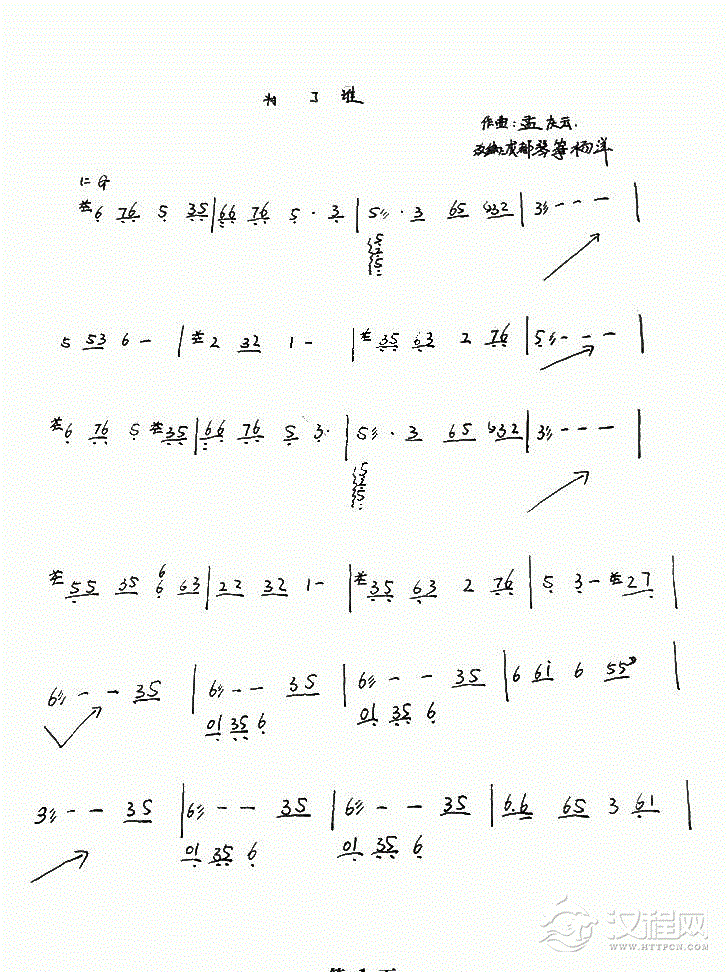 为了谁
作曲:孟庆云
改编:成都琴筝杨洋
1=G
6 76 5 35 | 66 76 5 · 3 | 5 · 3 65 32 | 3 - - - |
5 2 5
5 53 6 - | 2 32 1 - | 35 63 2 76 | 5 - - - |
6 76 5 35 | 66 76 5 3· | 5 · 3 65 32 | 3 - - - |
5 2 5
55 35 6 6 63 | 22 32 1 - | 35 63 2 76 | 5 3 - 27 |
6 - - 35 | 6 - - 35 | 6 - - 35 | 6 61 6 55 |
01 35 6 01 35 6
3 - - 35 | 6 - - 35 | 6 - - 35 | 6.6 65 3 61 |
01 35 6 01 35 6
汉程网
WWW.HTTPCN.COM